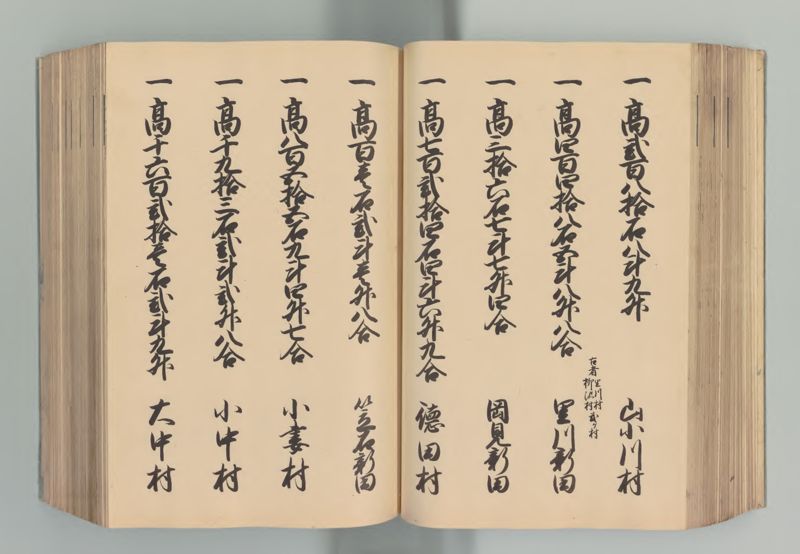 一高弐百八拾石八斗九升 小川村
一高四百四拾八石五斗八升八合 古者 里川村 柳沢村 弐ヶ村 里川新田
一高三拾六石七斗七升四合 岡見新田
一高七百弐拾四石四斗六升九合 徳田村
一高百壱石弐斗壱升八合 笠石新田
一高八百五拾五石九斗四升七合 小妻村
一高千九拾三石弐斗弐升八合 小中村
一高千六百弐拾壱石弐斗九升 大中村